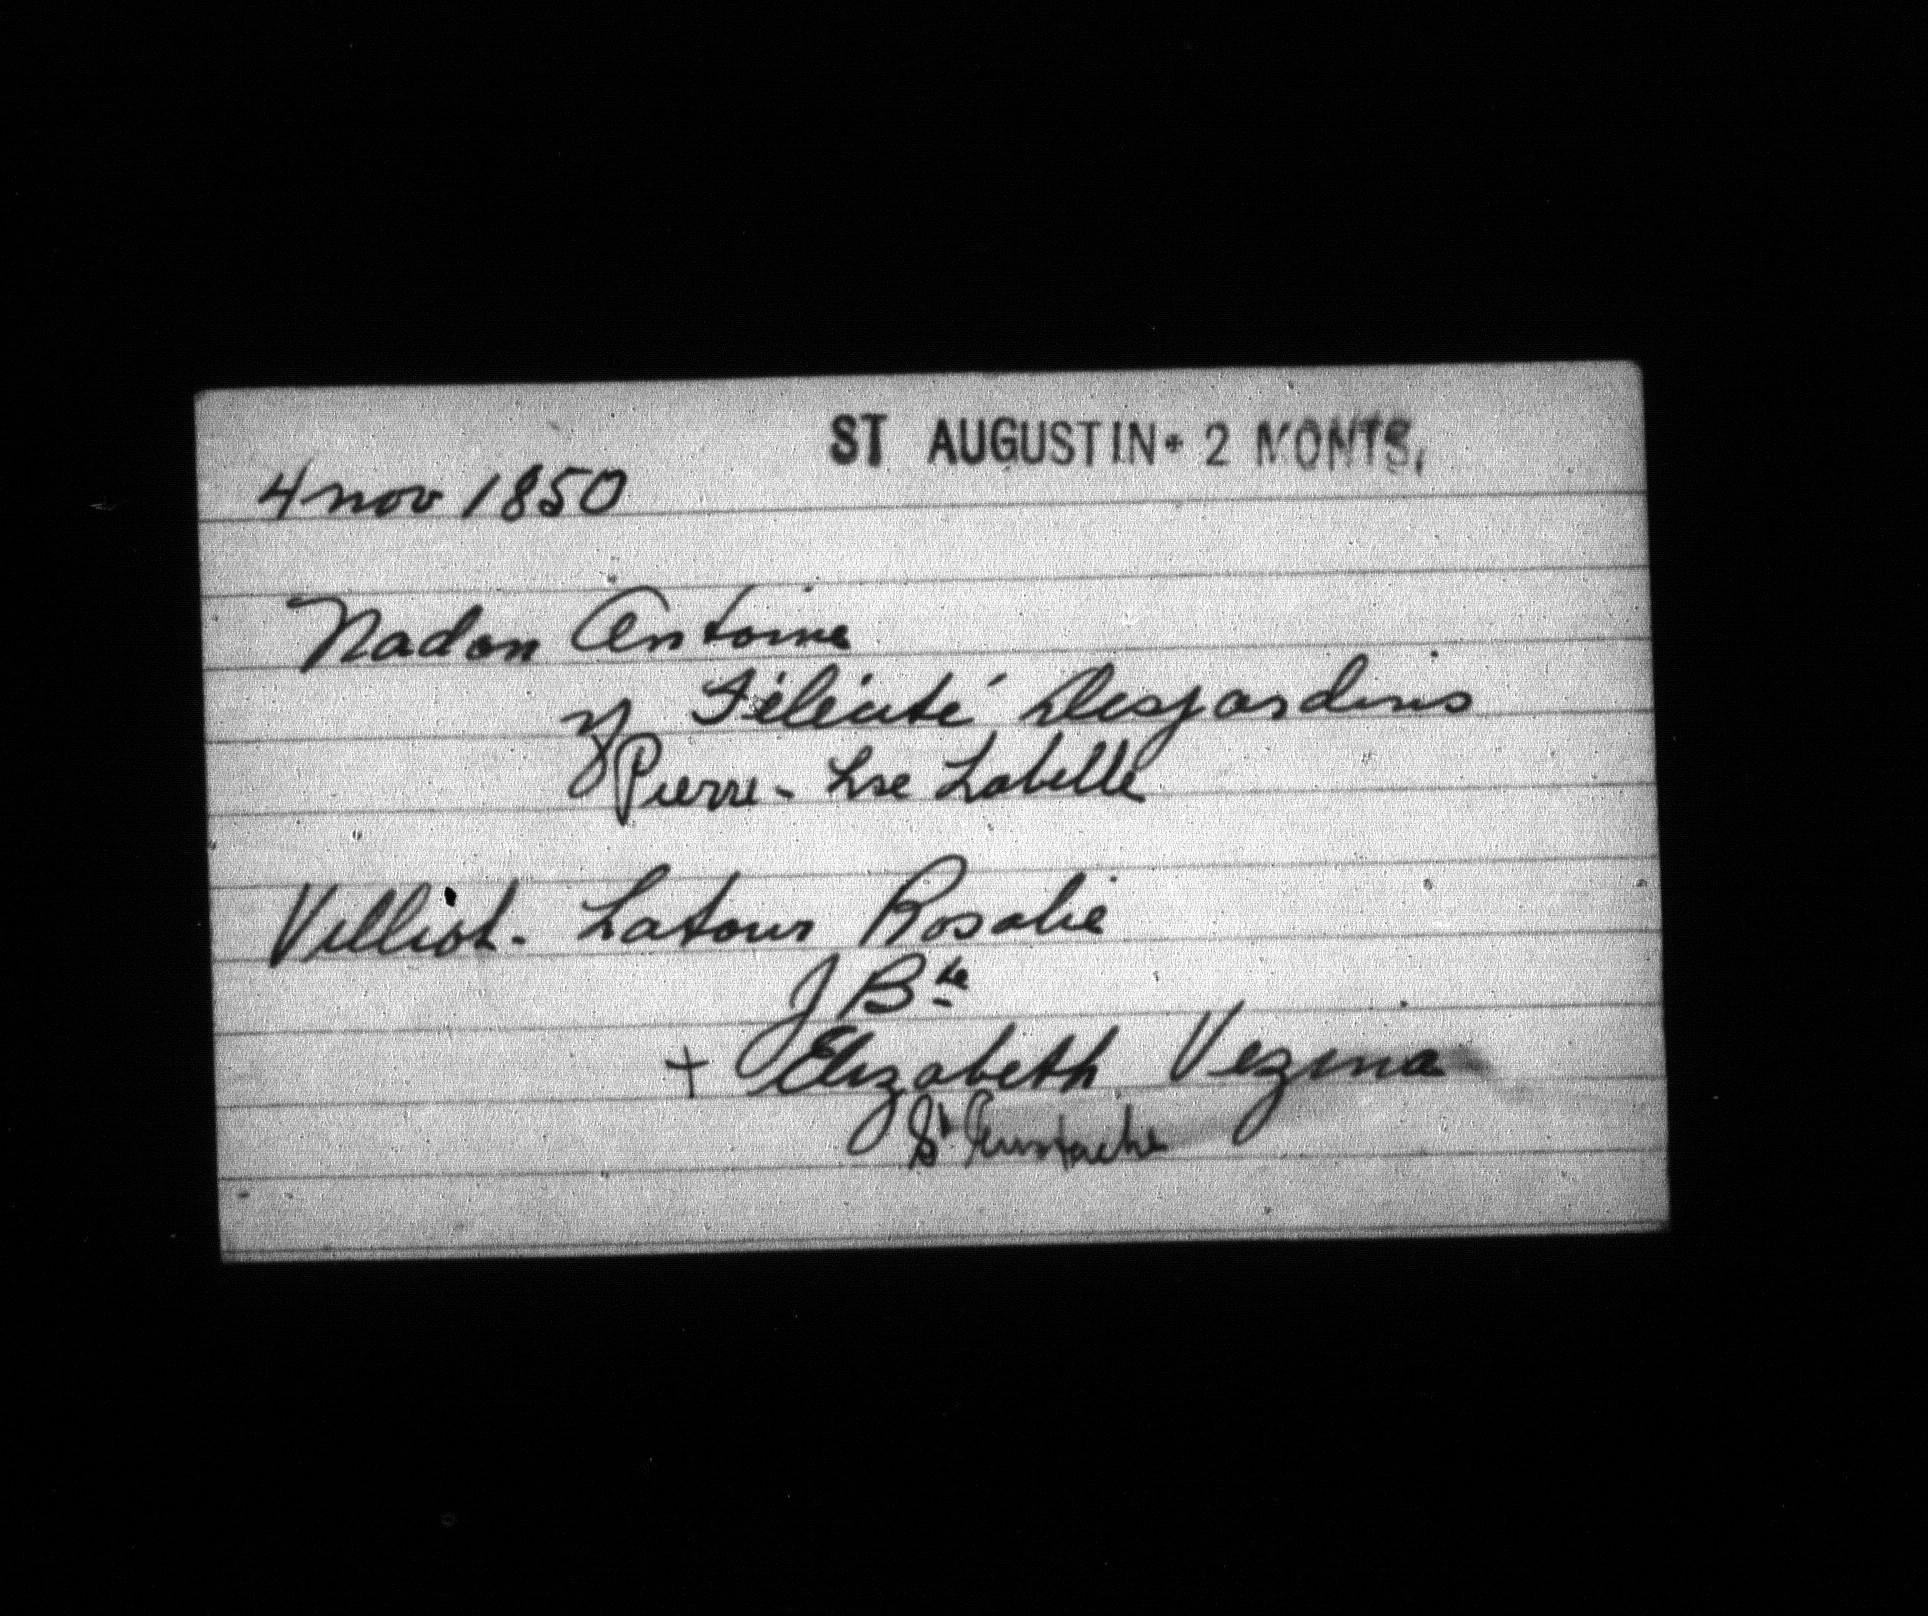 ST AUGUSTIN - 2 MONTS.
4 nov 1850
Nadon Antoine
vf Félicité Desjardins
Pierre - Lse Labelle
Villiot - Latour Rosalie
J Bte
+ Elizabeth Vezina
St Eustache